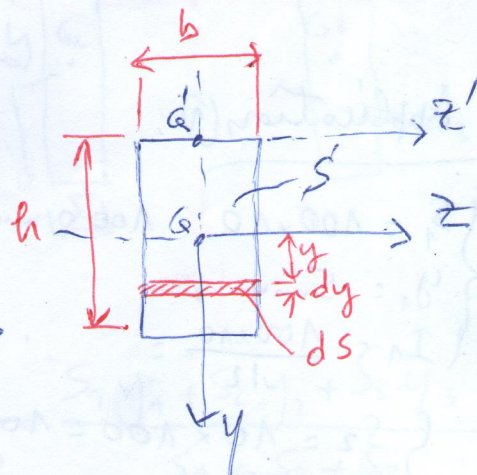 b
G'
z'
S
h
G
z
y
dy
ds
y